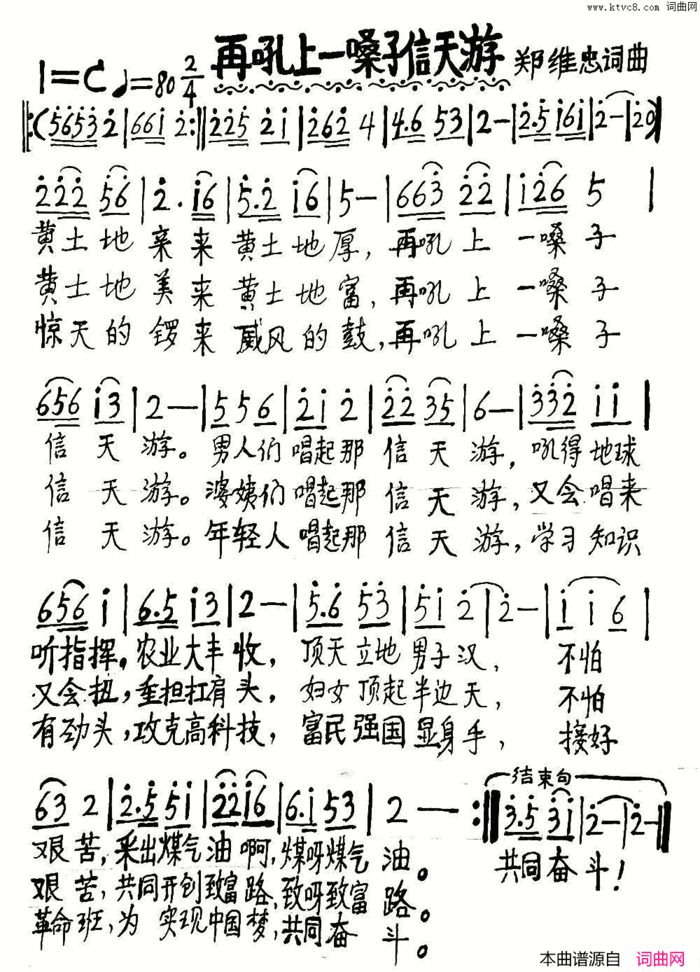 www.ktvc8.com 词曲网
再吼上一嗓子信天游
1=C ♩=80 2/4
郑维忠词曲
‖:(56532|661 2:‖225 21|262 4|4.6 53|2-|2.5 161|2-|20)
222 56|2. 16|5.2 16|5-|663 22|126 5|
黄土地亲来黄土地厚,再吼上一嗓子
黄土地美来黄土地富,再吼上一嗓子
惊天的锣来威风的鼓,再吼上一嗓子
656 13|2-|55 6|21 2|22 35|6-|332 11|
信天游。男人们唱起那信天游,吼得地球
信天游。婆姨们唱起那信天游,又会唱来
信天游。年轻人唱起那信天游,学习知识
656 1|6.5 13|2-|5.6 53|51 2|2-|1 1 6|
听指挥,农业大丰收,顶天立地男子汉,不怕
又会扭,重担扛肩头,妇女顶起半边天,不怕
有劲头,攻克高科技,富民强国显身手,接好
结束句
63 2|2.5 51|22 16|6.1 53|2-:‖3.5 31|2-|2-‖
艰苦,采出煤气油啊,煤呀煤气油。
共同奋斗!
艰苦,共同开创致富路,致呀致富路。
革命班,为实现中国梦,共同奋斗。
本曲谱源自 词曲网